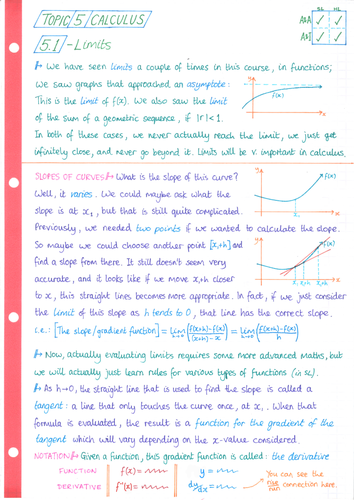 TOPIC 5 CALCULUS
SL HL
A&A ✓ ✓
A&I ✓ ✓
5.1 - Limits
We have seen limits a couple of times in this course, in functions;
we saw graphs that approached an asymptote:
This is the limit of f(x). We also saw the limit
of the sum of a geometric sequence, if |r|<1.
In both of these cases, we never actually reach the limit, we just get
infinitely close, and never go beyond it. Limits will be v. important in calculus.
y
f(x)
x
SLOPES OF CURVES What is the slope of this curve?
Well, it varies. We could maybe ask what the
slope is at x₁, but that is still quite complicated.
Previously, we needed two points if we wanted to calculate the slope.
So maybe we could choose another point [x₁+h] and
find a slope from there. It still doesn't seem very
accurate, and it looks like if we move x₁+h closer
to x, this straight lines becomes more appropriate. In fact, if we just consider
the limit of this slope as h tends to 0, that line has the correct slope.
y
f(x)
x₁
x
y
f(x)
x₁ x₁+h
x
i.e.: [The slope/gradient function] = lim h→0 (f(x+h)-f(x))/((x+h)-x) = lim h→0 (f(x+h)-f(x))/h
Now, actually evaluating limits requires some more advanced maths, but
we will actually just learn rules for various types of functions (in SL).
As h→0, the straight line that is used to find the slope is called a
tangent: a line that only touches the curve once, at x₁. When that
formula is evaluated, the result is a function for the gradient of the
tangent which will vary depending on the x-value considered.
NOTATION Given a function, this gradient function is called: the derivative
FUNCTION f(x) = y =
DERIVATIVE f'(x) = dy/dx =
You can see the
rise/run connection here.